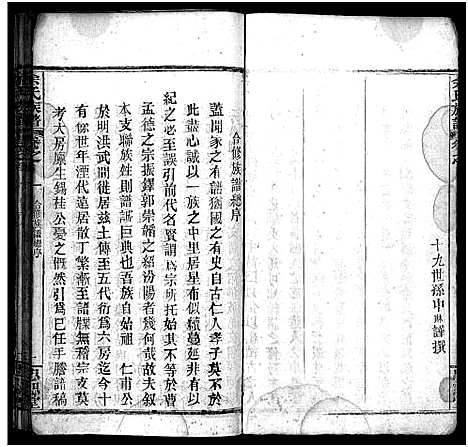 十九世孫申琳謹撰
合修族譜總序
蓋聞家之有譜猶國之有史自古仁人孝子莫不於
此盡心誠以一族之中里居星布似續蔓延非有以
紀之必至誤引前代名賢謂為宗所托始其不等於曹
孟德之宗振鐸郭崇韜之紹汾陽者幾何哉故夫叙
本支聯族姓則譜誠巨典也吾族自始祖 仁甫公
於明洪武間徙居茲土傳至五代衍為六房迄今十
有餘世年湮代遠居散丁繁漸至譜牒無稽宗支莫
考大房廩生錫桂公憂之慨然引為己任手謄譜稿
余氏族譜 卷之一 合修族譜總序 一